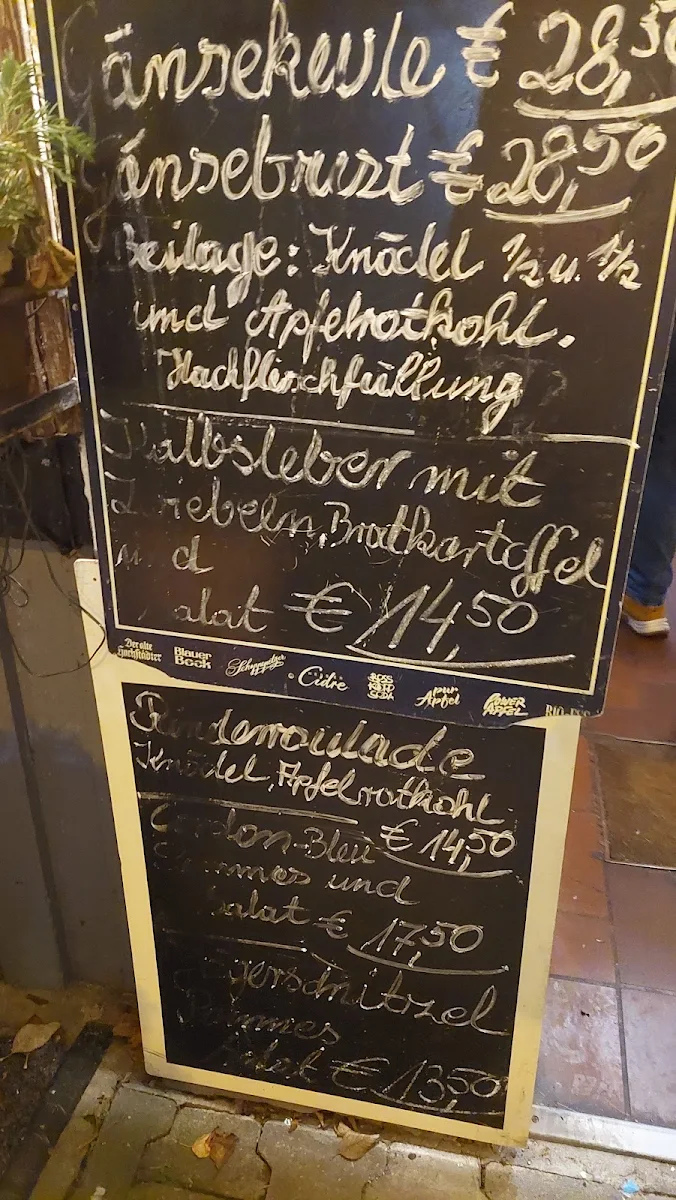 Gänsekeule € 28,50
Gänsebrust € 28,50
Beilage: Knödel ½ u. ½
und Apfelrotkohl.
Hackfleischfüllung
Kalbsleber mit
Zwiebeln, Bratkartoffel
und
Salat € 14,50
Der alte Hochstädter
Blauer Bock
Cidre
pur Apfel
POWER APFEL
Rinderroulade
Knödel, Apfelrotkohl
€ 14,50
Cordon-Bleu
Pommes und
Salat € 17,50
Jägerschnitzel
Pommes
Salat € 13,50